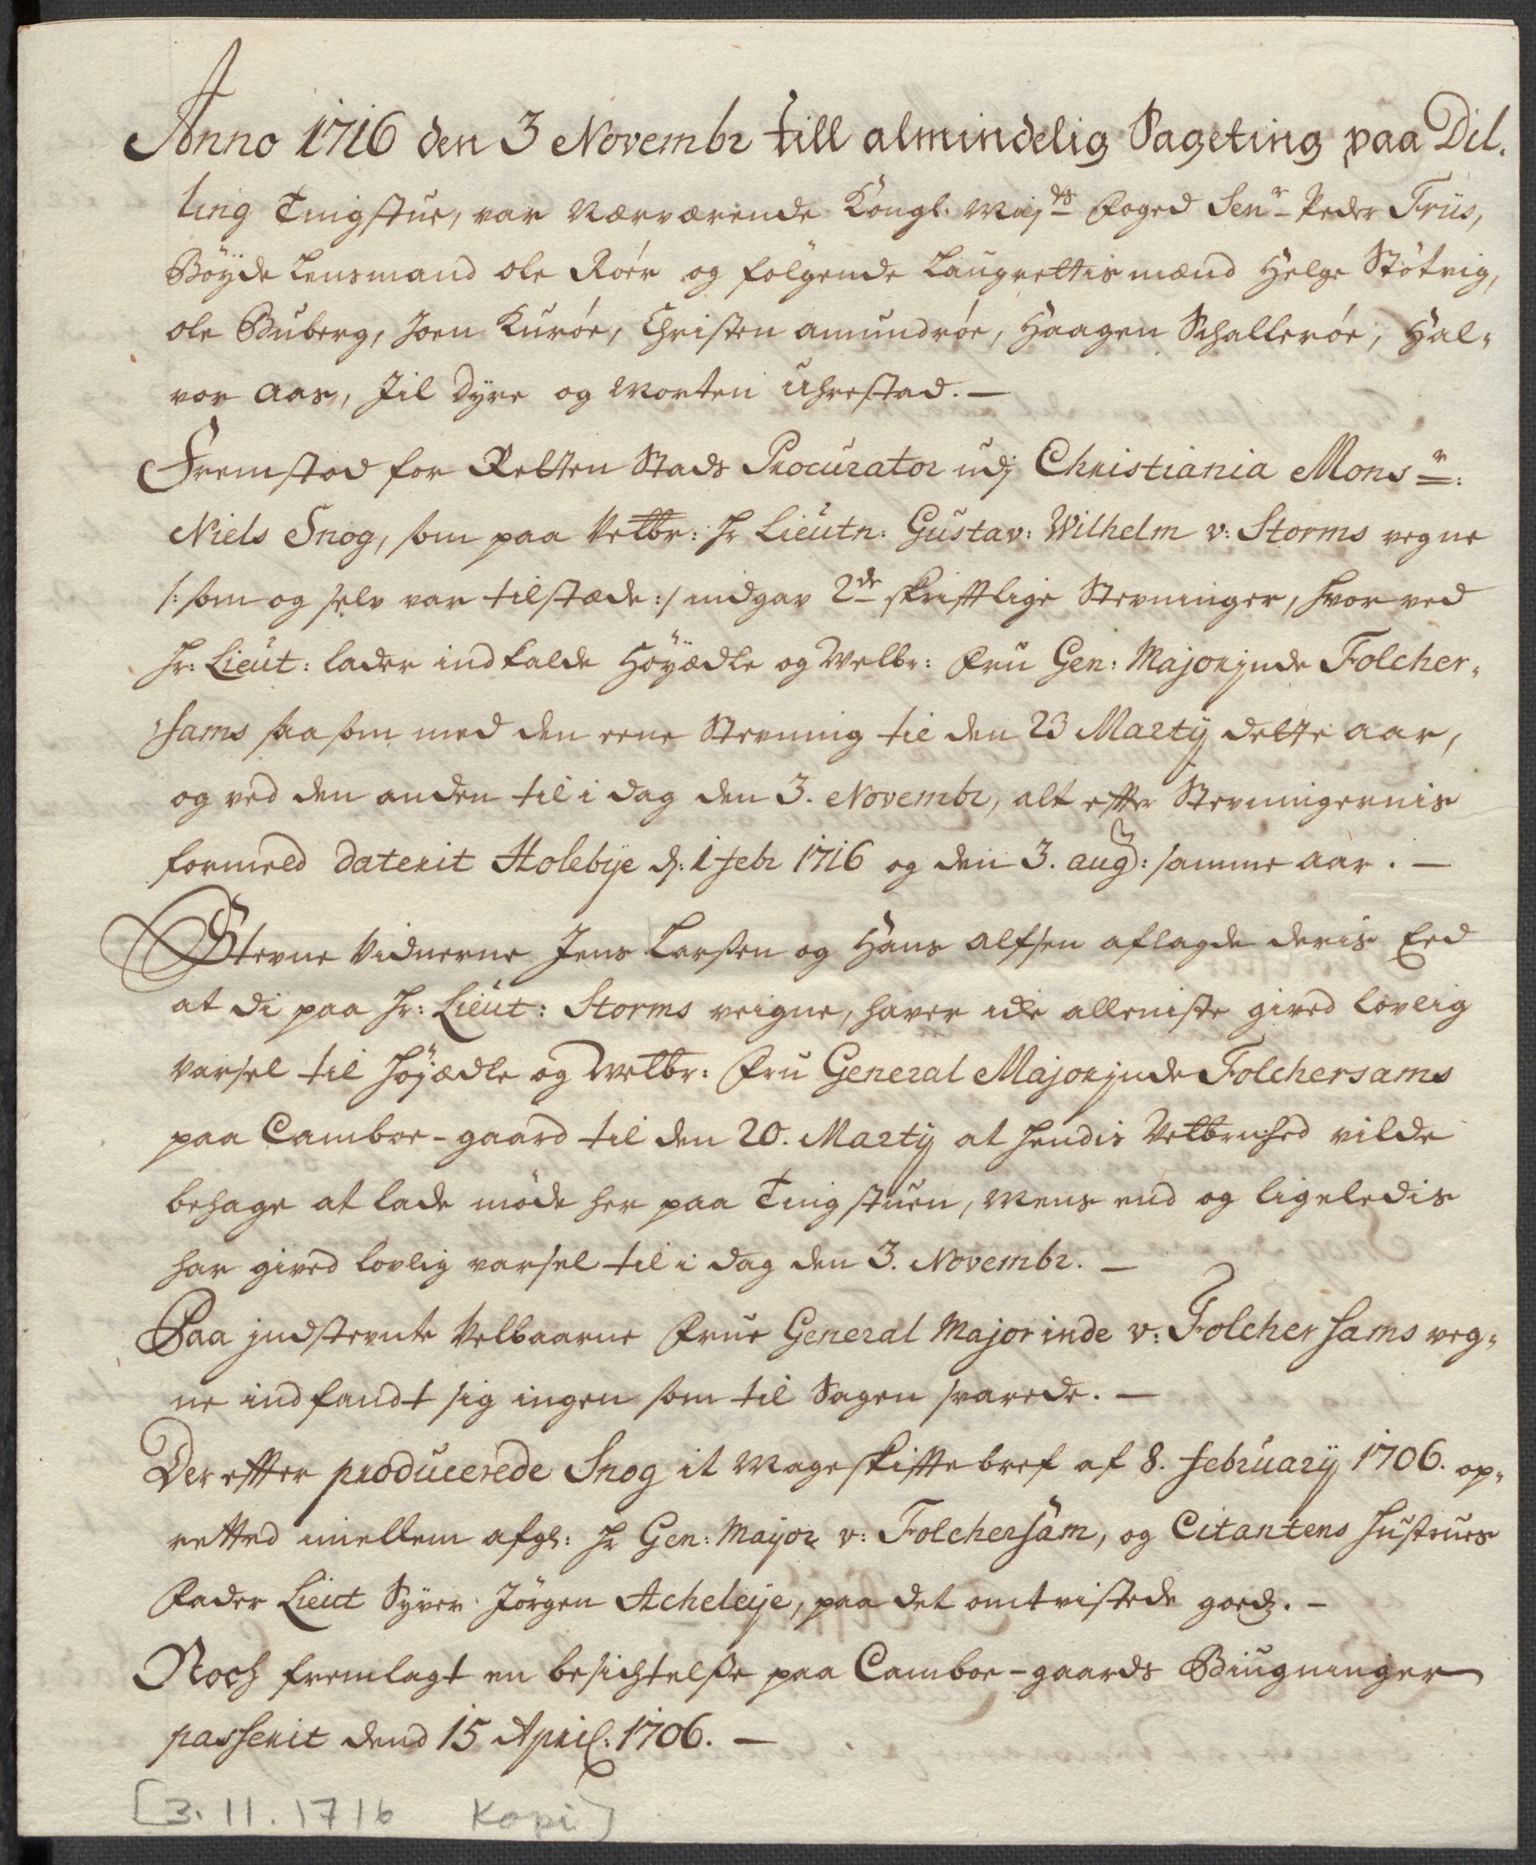 Anno 1716 den 3 Novembr till almindelig Sageting paa Dil-
ling Tingstue, var Nærværende Kongl: Maj:ts Foged Senr Peder Friis,
Böyde Lensmand Ole Röer og følgende Laugrettis mænd Helge Stötvig,
Ole Buberg, Joen Kuröe, Christen Amundröe, Haagen Schalleröe, Hal-
vor Aas, Jil Dyre og Morten Uhrestad. —
Fremstod for Retten Stads Procurator udj Christiania Monsr:
Niels Snog, som paa Velbr: Hr Lieutn: Gustav: Wilhelm v: Storms vegne
/: som og selv var tilstæde :/ indgav 2de skrifftlige Stevninger, hvorved
Hr: Lieut: lader indkalde Höyædle og Welbr: Fru Gen: Majorjnde Folcher-
sams saasom med den eene Stevning til den 23 Martij dette aar,
og ved den anden til i dag den 3. Novembr, alt effter Stevningernis
formeld daterit Holebÿe d: 1 Febr 1716 og den 3. aug: samme aar. —
Stevne Vidnerne Jens Larßen og Hans Alfsen aflagde deris Eed
at di paa Hr: Lieut: Storms veigne, haver icke alleniste gived lovlig
varsel til Höyædle og Welbr: Fru General Majorjnde Folchersams
paa Camboe-gaard til den 20. Martij at hendis Velbrnhed vilde
behage at lade möde her paa Tingstuen, Mens end og ligeledis
har gived lovlig varsel til i dag den 3. Novembr. —
Paa jndstevnte Velbaarne Frue General Majorinde v: Folchersams veg-
ne indfandt sig ingen som til Sagen svarede. —
Der effter producerede Snog it Mageskifftebref af 8. Februarij 1706. op-
retted imellem afgl: Hr Gen: Major v: Folchersam, og Citantens Hustrues
Fader Lieut Syver Jörgen Acheleÿe, paa det omtvistede goedz. —
Noch fremlagt en besichtelße paa Camboe-gaards Biugninger
passerit dend 15 April: 1706. —
[3.11.1716 Kopi]